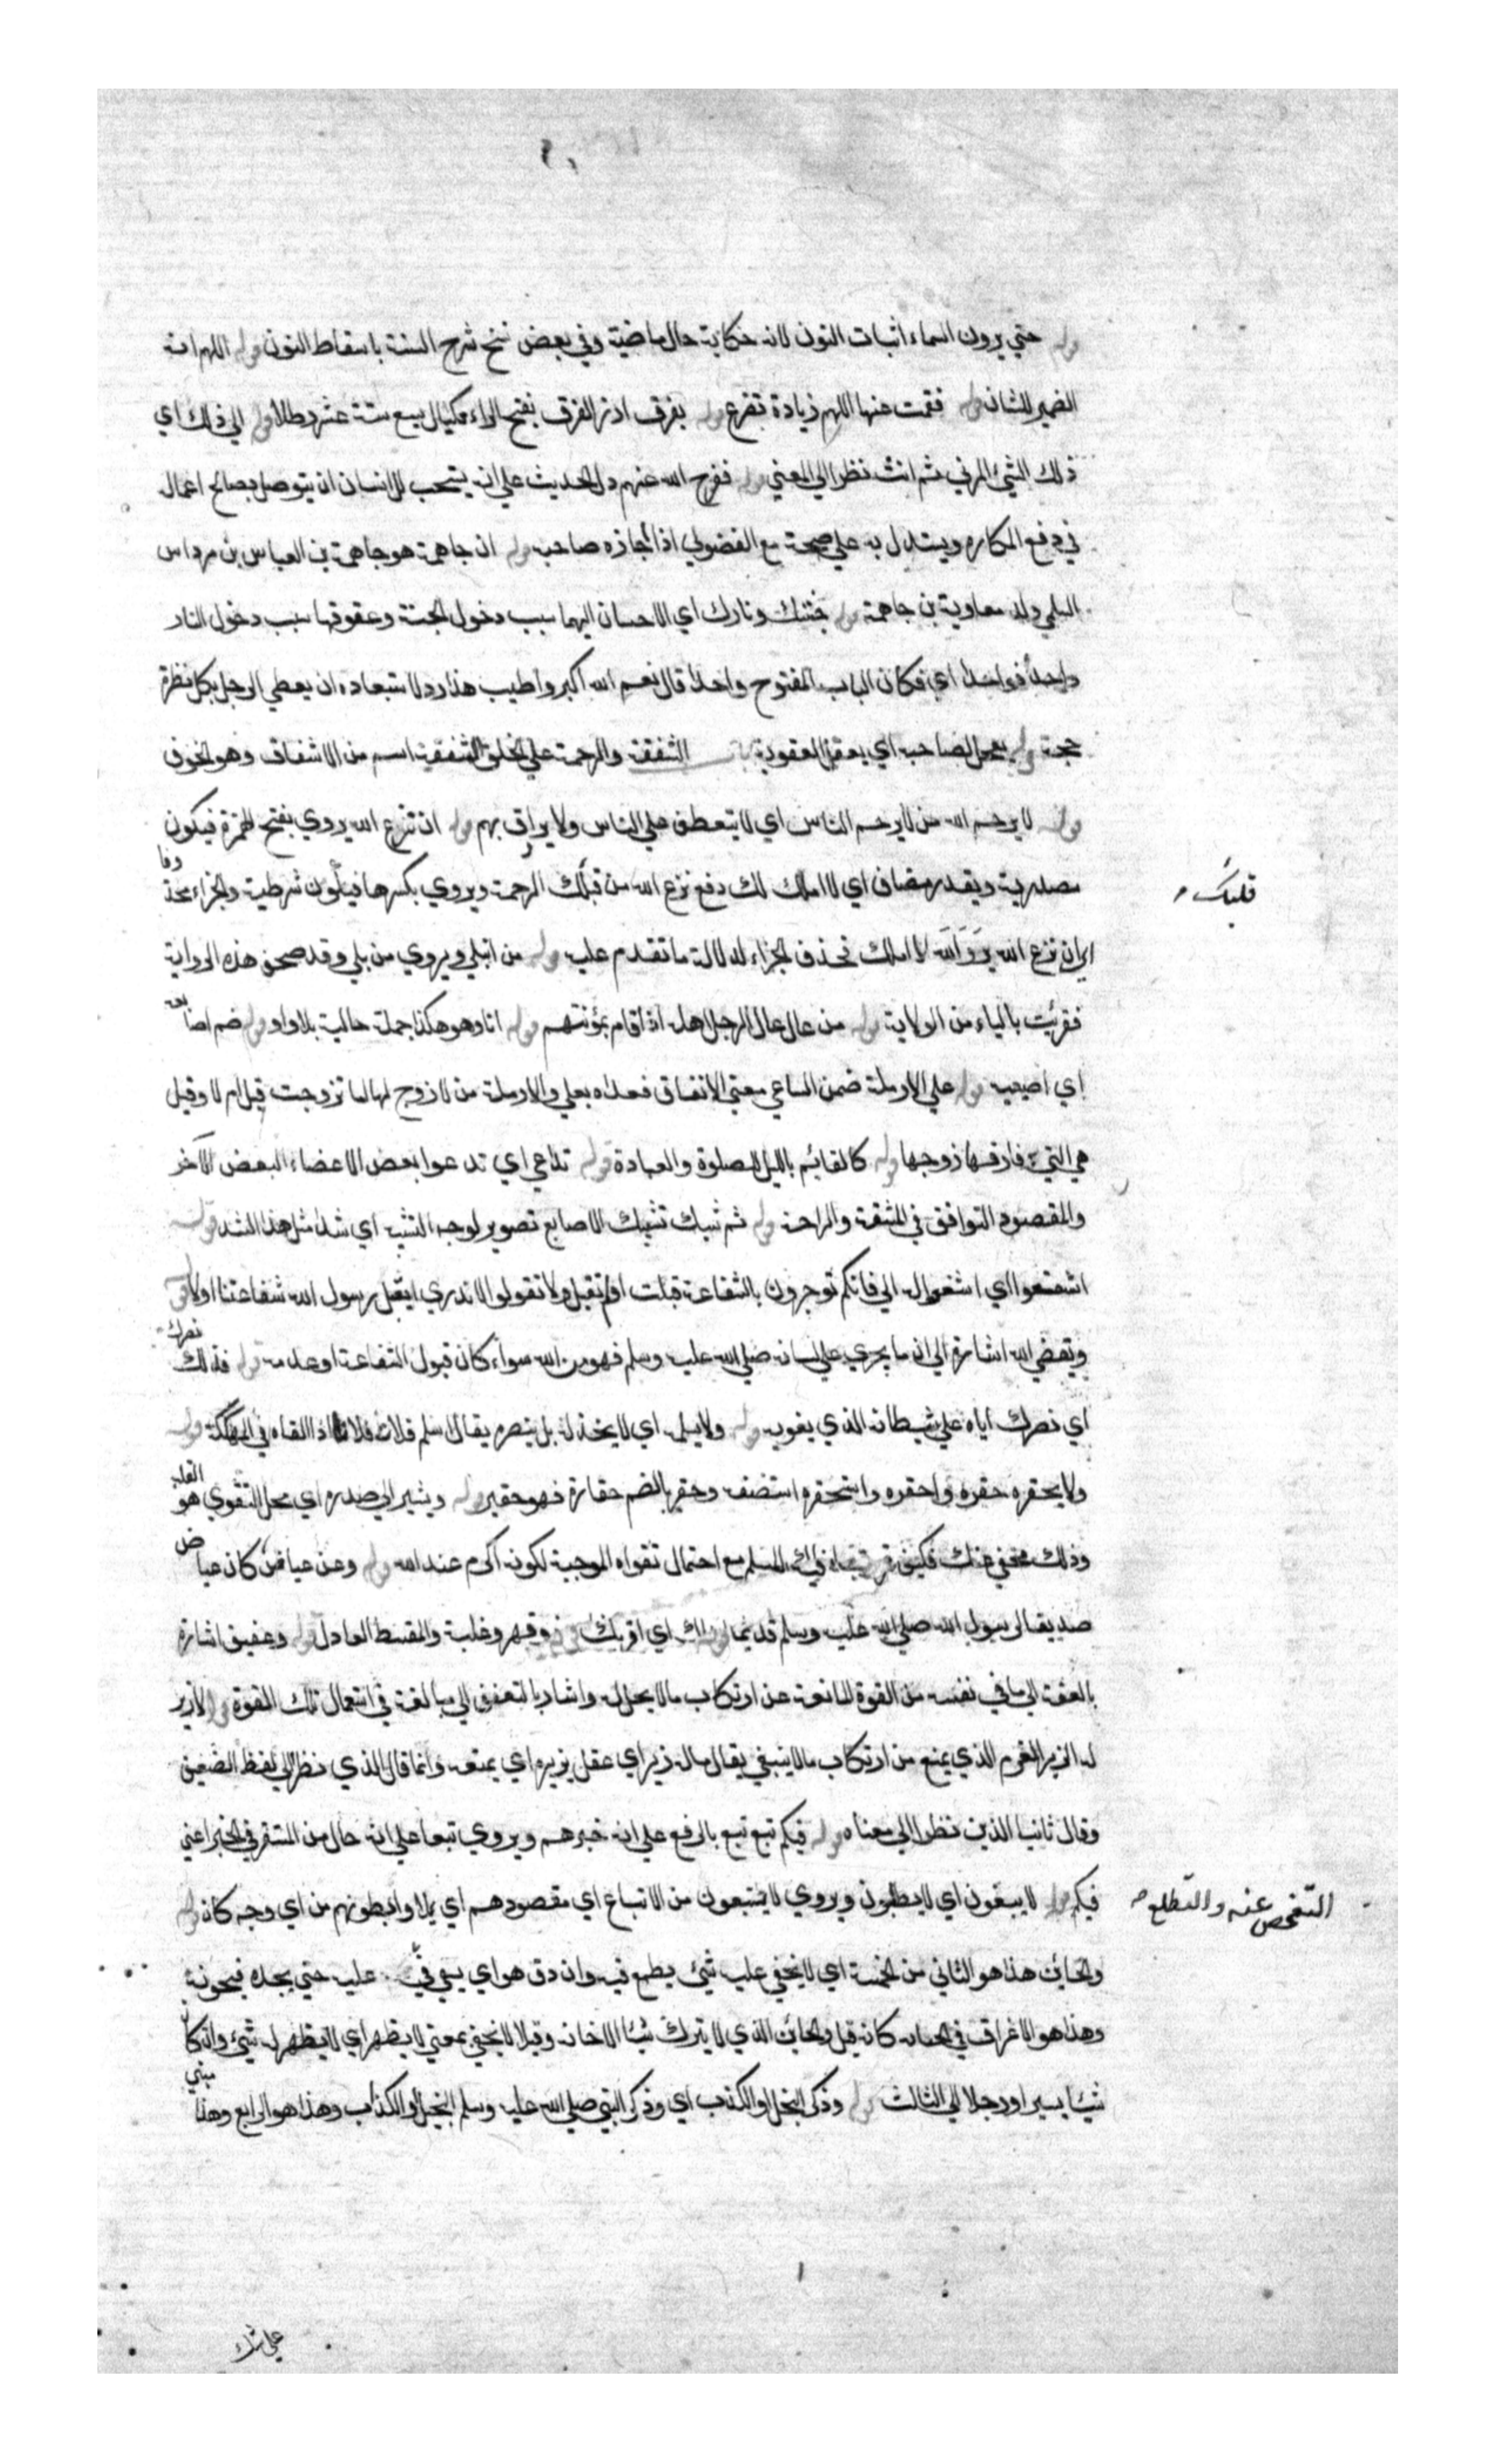 قوله حتي يرون السماء اثبات النون لانه حكاية حال ماضية وفي بعض نسخ شرح السنة باسقاط النون قوله اللهم انه
الضمير للشان قوله فقمت عنها اللهم زيادة تضرع قوله بفرق ارز الفرق بفتح الراء مكيال يسع ستة عشر رطلا قوله الي ذلك اي
ذلك الشيئ المرئي ثم انث نظرا الي المعني قوله ففرج الله عنهم دل الحديث علي انه يستحب للانسان ان يتوصل بصالح اعماله
في دفع المكاره ويستدل به علي صحة بيع الفضولي اذا اجازه صاحبه قوله ان جاهمة هو جاهمة بن العباس بن مرداس
السلمي والد معاوية بن جاهمة قوله جنتك ونارك اي الاحسان اليهما سبب دخول الجنة وعقوقهما سبب دخول النار
واحدا فواحدا اي فكان الباب المفتوح واحدا قال نعم الله اكبر واطيب هذا رد لاستبعاده ان يعطي الرجل بكل نظرة
حجة قوله يعجل لصاحبه اي يعجل العقوبة باب الشفقة والرحمة علي الخلق الشفقة اسم من الاشفاق وهو الخوف
قوله لا يرحم الله من لا يرحم الناس اي لا يتعطف علي الناس ولا يراف بهم قوله ان نزع الله يروي بفتح الهمزة فيكون
مصدرية ويقدر مضاف اي لا املك لك دفع نزع الله من قبلك الرحمة ويروي بكسرها فيكون شرطية والجزاء محذوفا
قلبك
اي ان نزع الله لا املك فحذف الجزاء لدلالة ما تقدم عليه قوله من ابتلي ويروي من بلي وقد صحف هذه الرواية
فقرئت بالياء من الولاية قوله من عال عال الرجل اهله اذا قام بمؤنتهم قوله انا وهو هكذا جملة حالية بلا واو قوله ضم اصابعه
اي اصبعيه قوله علي الارملة ضمن الساعي معني الانفاق فعداه بعلي والارملة من لا زوج لها لها تزوجت قبل ام لا وقيل
هي التي فارقها زوجها قوله كالقائم بالليل للصلوة والعبادة قوله تداعي اي تدعوا بعض الاعضاء البعض الآخر
والمقصود التوافق في المشقة والراحة قوله ثم شبك تشبيك الاصابع تصوير لوجه التشبيه اي شدا مثل هذا الشد قوله
اشفعوا اي اشفعوا له الي فانكم توجرون بالشفاعة قبلت او لم تقبل ولا تقولوا لا ندري ايقبل رسول الله شفاعتنا اولا قوله
ويقضي الله اشارة الي ان ما يجري علي لسانه صلي الله عليه وسلم فهو من الله سواء كان قبول الشفاعة او عدمه قوله فذلك نصرك
اي نصرك اياه علي شيطانه الذي يغويه قوله ولا يسلمه اي لا يخذله بل ينصره يقال اسلم فلان فلانا اذا القاه في الهلكة قوله
ولا يحقره حقره واحقره واستحقره استضعفه وحقر بالضم حقارة فهو حقير قوله ويشير الي صدره اي محل التقوي هو القلب
وذلك مخفي عنك المسلم مع احتمال تقواه الموجبة لكونه اكرم عند الله قوله وعن عياض كان عياض
صديقا لرسول الله صلي الله عليه وسلم قديما اي اقربك ذو قهر وغلبة والمقسط العادل قوله وعفيف اشارة
بالعفة الي ما في نفسه من القوة المانعة عن ارتكاب ما لا يحل له واشار بالتعفف الي مبالغة في استعمال تلك القوة قوله لا زبر
له الزبر العزم الذي يمنع من ارتكاب ما لا ينبغي يقال ماله زبر اي عقل يزبره اي يمنعه وانما قال الذي نظرا الي لفظ الضعيف
وقال ثانيا الذين نظرا الي معناه قوله فيكم تبع تبع بالرفع علي انه خبرهم ويروي تبعا علي انه حال من المستتر في الخبر اعني
فيكم قوله لا يبغون اي لا يطلبون ويروي لا يتبعون من الاتباع اي مقصودهم اي يملاوا بطونهم من اي وجه كان قوله
التفحص عنه والتطلع
والخائن هذا هو الثاني من الخمسة اي لا يخفي عليه شيئ يطمع فيه وان دق هو اي يسعي في عليه حتي يجده فيخونه
وهذا هو الاغراق في الخيانة كانه قيل والخائن الذي لا يترك شيئا الا خانه وقيل لا يخفي بمعني لا يظهر اي لا يظهر له شيئ وان كان
شيئا يسيرا ورجلا الي الثالث قوله وذكر البخل او الكذب اي وذكر النبي صلي الله عليه وسلم البخيل او الكذاب وهذا هو الرابع وهذا مبني
علي شك